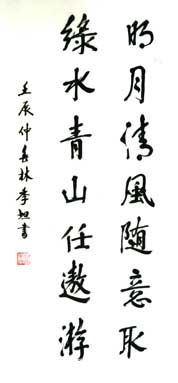 明月清風随意取
綠水青山任遨游
壬辰仲春林季書